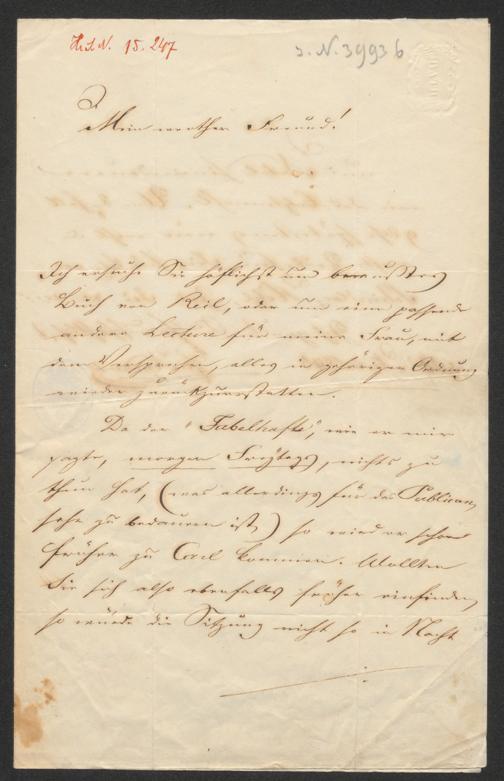 H.I.N. 15.247
J.N. 3993 b
Mein werther Freund!
Ich ersuche Sie höflichst um
Buch von Keil, oder um eine passende
andere Lecture für meine Frau, mit
dem Versprechen, alles in gehöriger Ordnung
wieder zurückzuerstatten.
Da der "Fabelhafte", wie er mir
sagte, morgen Freytags, nichts zu
thun hat, (was allerdings für das Publicum
sehr zu bedauern ist) so wird er schon
früher zu Carl kommen. Wollten
Sie sich also ebenfalls früher einfinden,
so würde die Sitzung nicht so in Nacht